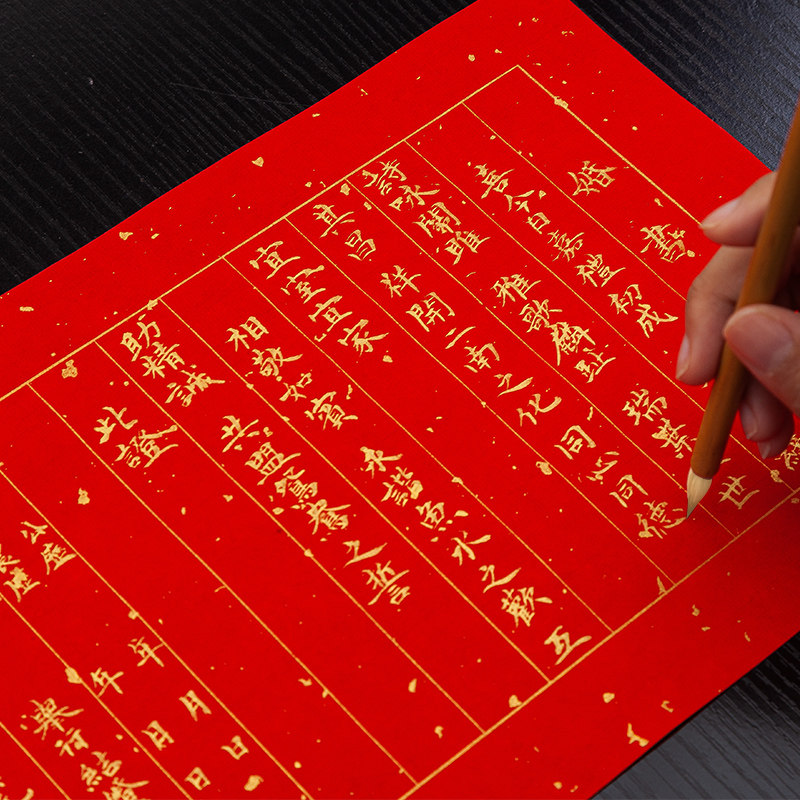 婚書
喜今日嘉禮初成
詩咏關雎 雅歌麟趾 瑞葉 世
其昌 祥開二南之化 同心同德
宜室宜家 相敬如賓 永諧魚水之歡 互
助精誠 共盟鴛鴦之誓
此證
公歷 年 月 日
歷 年 月 日
舉行結婚